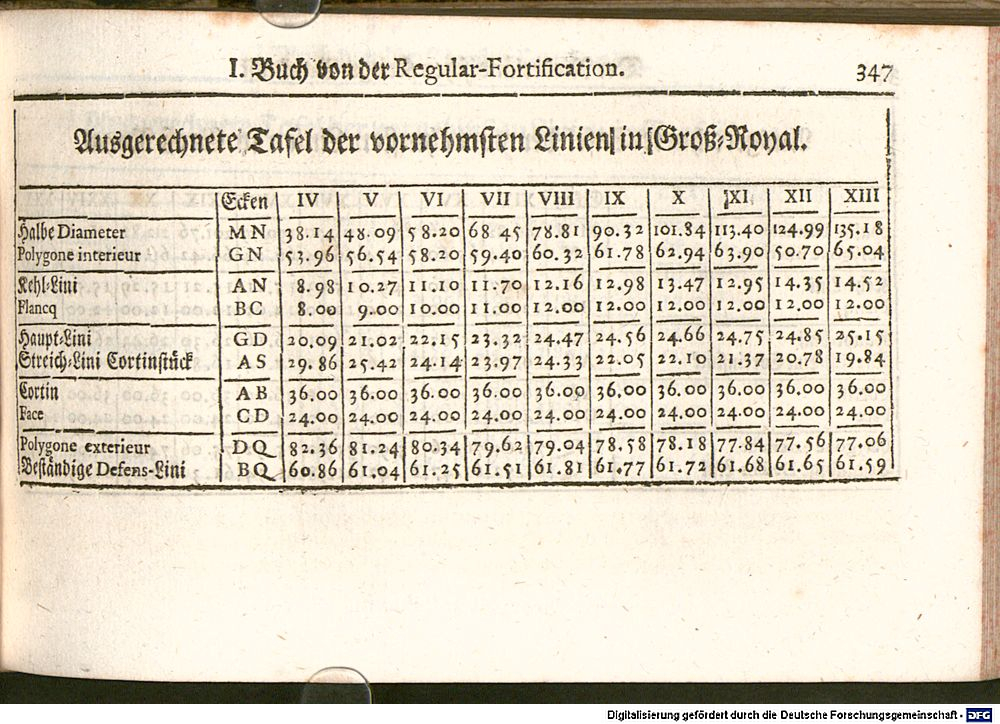 I. Buch von der Regular-Fortification. 347
Ausgerechnete Tafel der vornehmsten Linien/ in Groß-Royal.
Ecken IV V VI VII VIII IX X XI XII XIII
Halbe Diameter MN 38.14 48.09 58.20 68.45 78.81 90.32 101.84 113.40 124.99 135.18
Polygone interieur GN 53.96 56.54 58.20 59.40 60.32 61.78 62.94 63.90 50.70 65.04
Kehl-Lini AN 8.98 10.27 11.10 11.70 12.16 12.98 13.47 12.95 14.35 14.52
Flancq BC 8.00 9.00 10.00 11.00 12.00 12.00 12.00 12.00 12.00 12.00
Haupt-Lini GD 20.09 21.02 22.15 23.32 24.47 24.56 24.66 24.75 24.85 25.15
Streich-Lini Cortinstück AS 29.86 25.42 24.14 23.97 24.33 22.05 22.10 21.37 20.78 19.84
Cortin AB 36.00 36.00 36.00 36.00 36.00 36.00 36.00 36.00 36.00 36.00
Face CD 24.00 24.00 24.00 24.00 24.00 24.00 24.00 24.00 24.00 24.00
Polygone exterieur DQ 82.36 81.24 80.34 79.62 79.04 78.58 78.18 77.84 77.56 77.06
Beständige Defens-Lini BQ 60.86 61.04 61.25 61.51 61.81 61.77 61.72 61.68 61.65 61.59
Digitalisierung gefördert durch die Deutsche Forschungsgemeinschaft - DFG